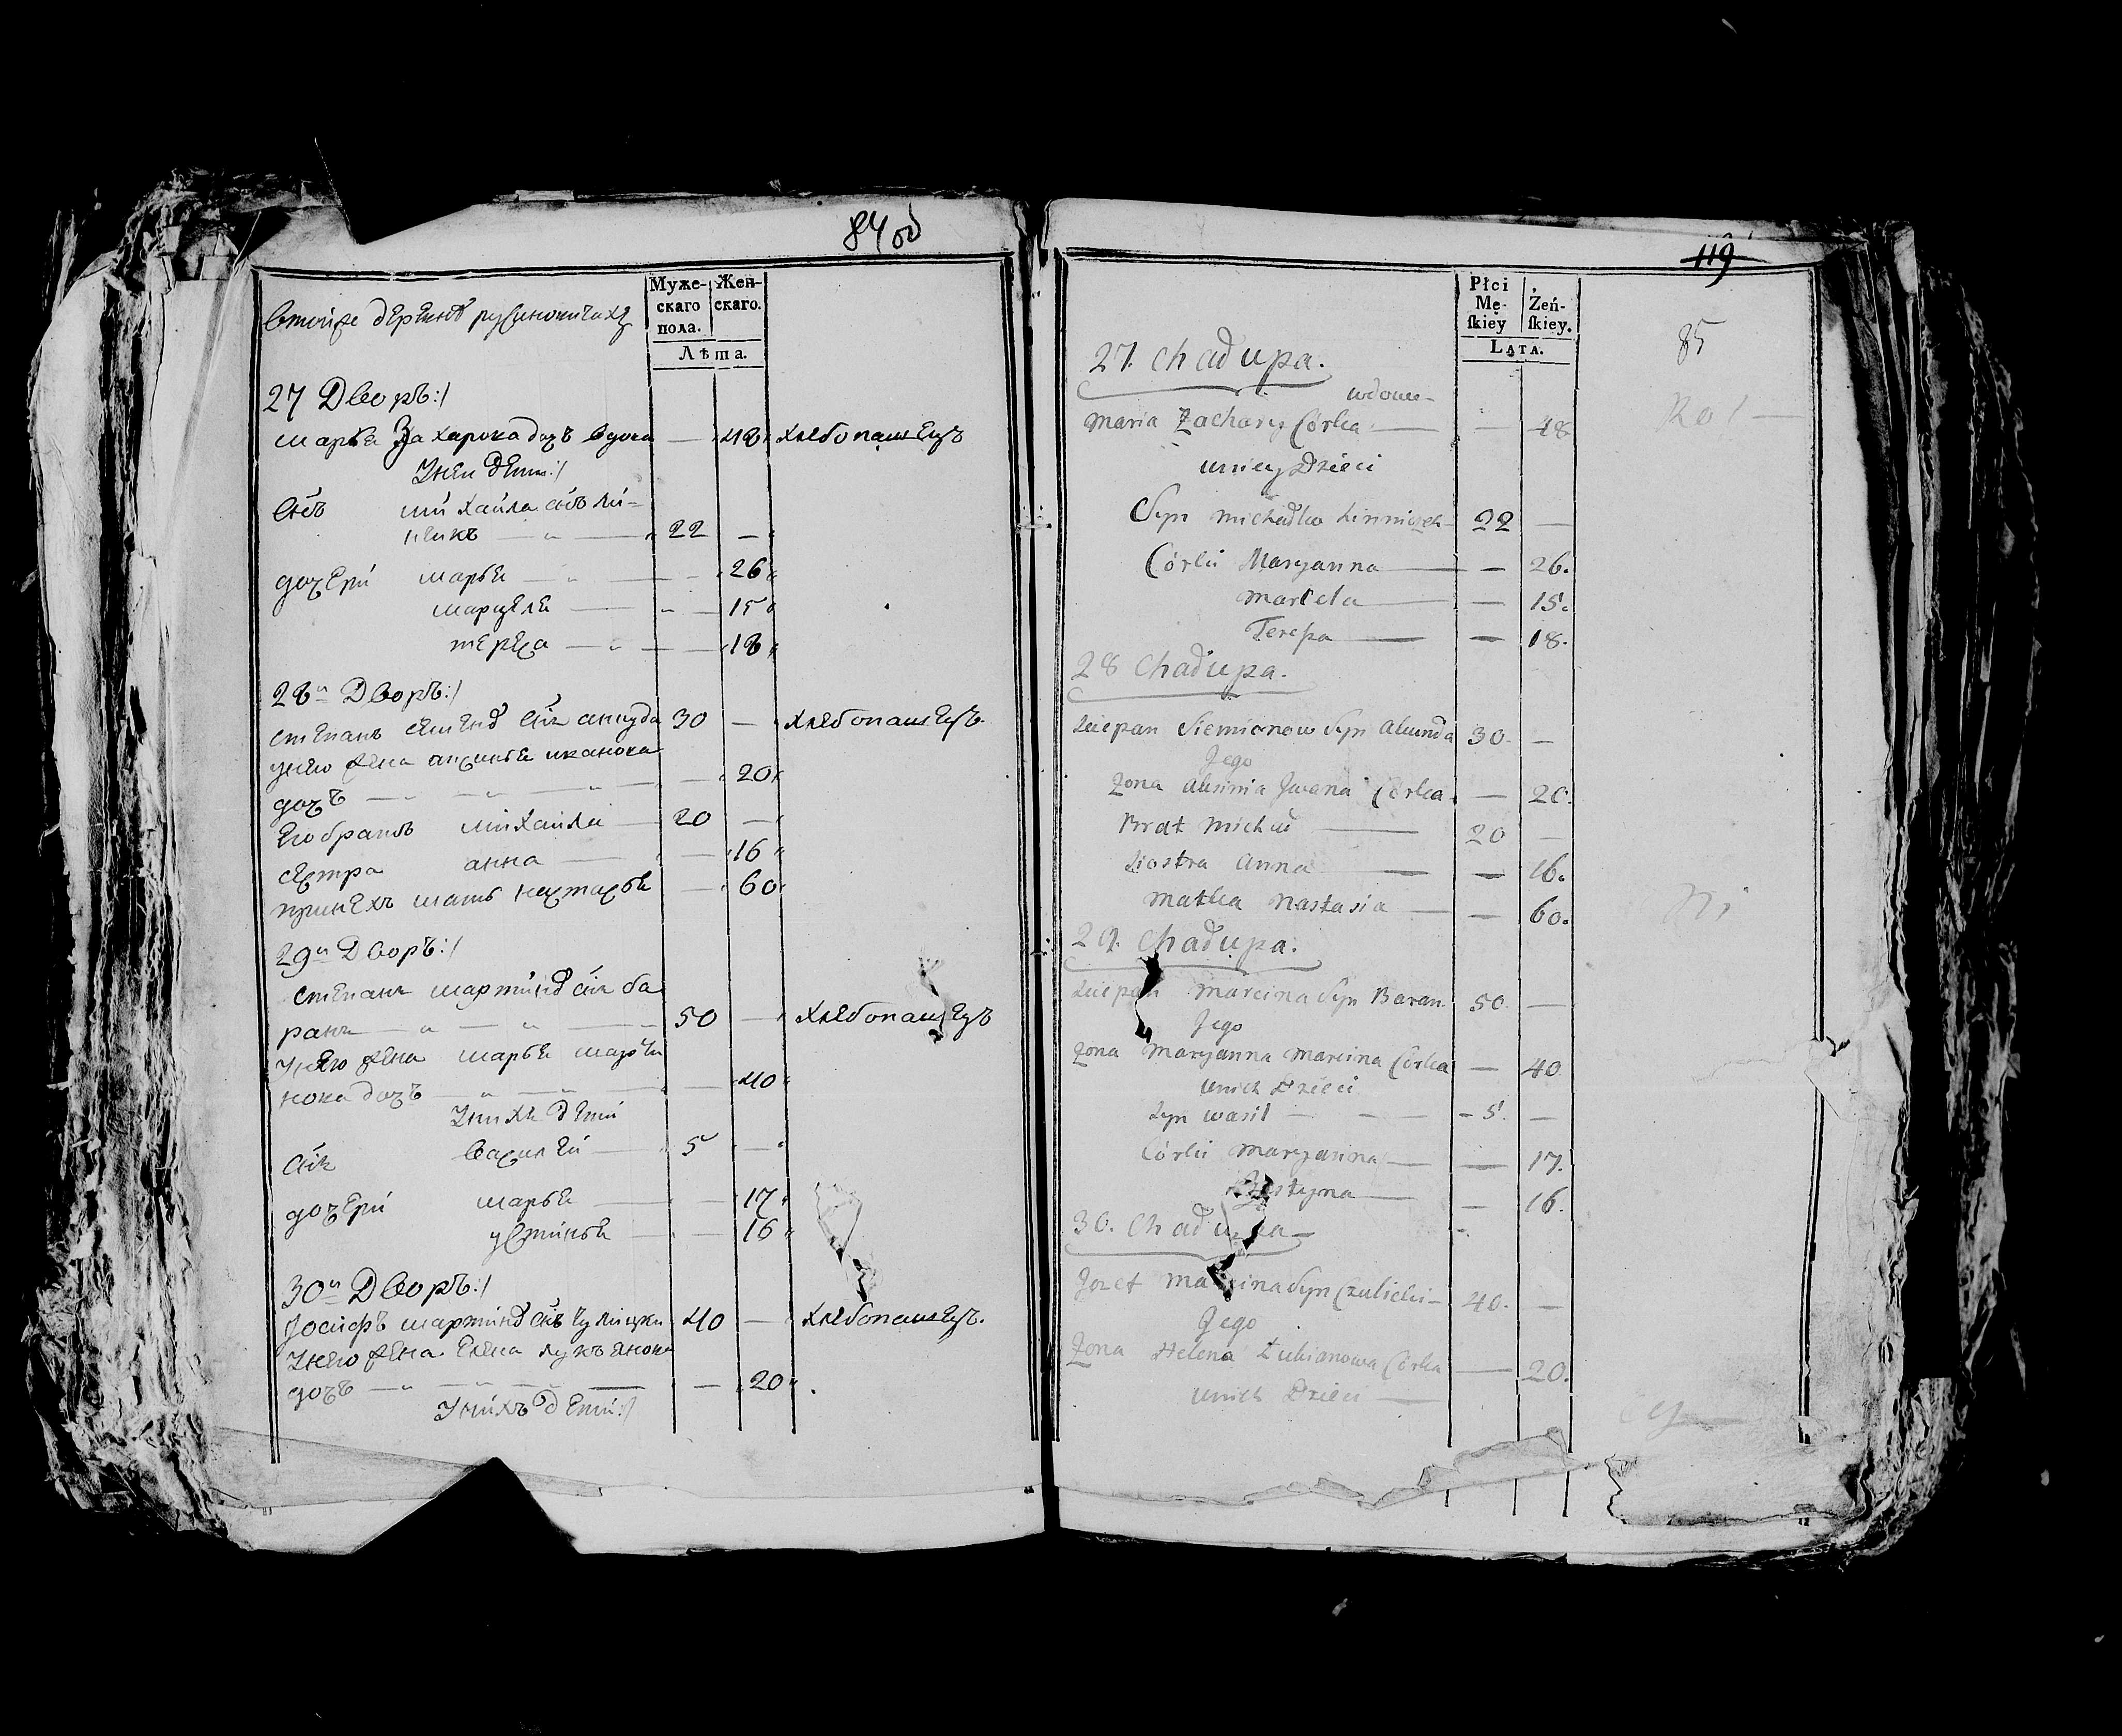 84 об
Муже-
скаго
пола.
Жен-
скаго.
Лѣта.
27 Дворъ:/
марья Захарова дочъ вдова — 48 хлебопашецъ
У неи дети:/
снъ михаила снъ ли-
никъ — 22 —
дочери марья — 26
марцеля — 15
тереса — 18
28й Дворъ:/
степанъ семенов снъ акуда 30 — хлебопашецъ.
у него жена аксинья иванова
дочъ — 20
его братъ михаила — 20 —
сестра анна — 16
при нехъ мать настасья — 60
29й Дворъ:/
степанъ мартинов снъ ба
ранъ — 50 — хлебопашецъ
у него жена марья марти
нова дочъ — 40
У нихъ дети
снъ василеи — 5 —
дочери марья — 17
устинья — 16
30й Дворъ:/
Иосифъ мартинов снъ чулицки 40 — хлебопашецъ.
У него жена елена лукъянова
дочъ — 20
У нихъ дети:/
119
85
Płci
Mę-
ſkiey
Żeń-
ſkiey.
Lata.
27. Chałupa.
wdowa
Maria Zachary Córka — — 48
u niey Dzieci
Syn Michałko Linniczek 22 —
Córki Maryanna — — 26.
Marcela — — 15.
Teressa — — 18.
28 Chałupa.
Sciepan Siemionow Syn Akunda 30. —
Jego
Zona Aksinia Jwana Córka — 20.
Brat Michał — 20 —
Siostra Anna — — 16.
Matka Nastasia — — 60.
29. Chałupa.
Sciepan Marcina Syn Baran 50. —
Jego
Zona Maryanna Marcina Córka — 40
u nich Dzieci
Syn Wasil — 5. —
Córki Maryanna — — 17.
Justyna — — 16.
30. Chałupa
Jozef Marcina Syn Czulicki 40. —
Jego
Zona Helena Łukianowa Córka — 20.
u nich Dzieci —